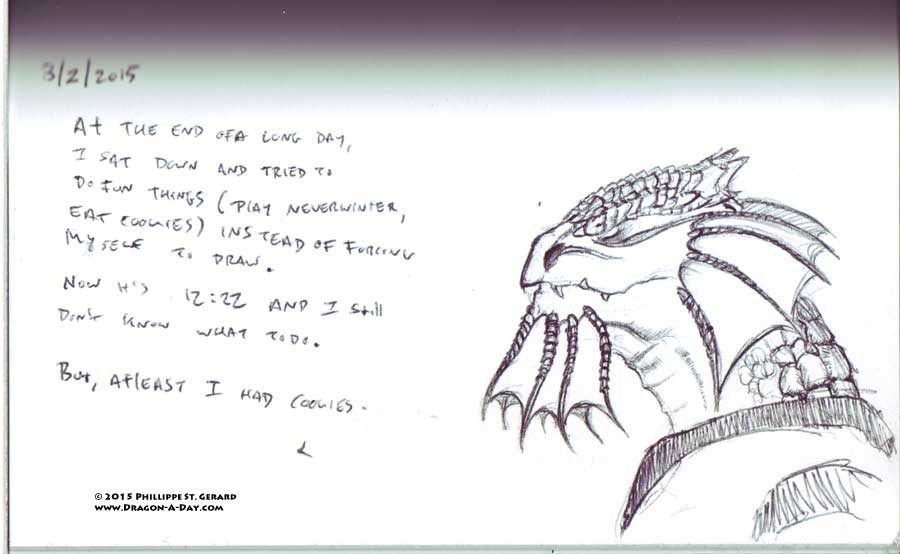 3/2/2015
At THE END OFA LONG DAY,
I SAT DOWN AND TRIED TO
DO FUN THINGS (PLAY NEVERWINTER,
EAT COOKIES) INSTEAD OF FORCING
MYSELF TO DRAW.
NOW IT'S 12:22 AND I Still
DON'T KNOW WHAT TODO.
BUt, AtLEAST I HAD COOKIES.
© 2015 PHILLIPPE ST. GERARD
WWW.DRAGON-A-DAY.COM